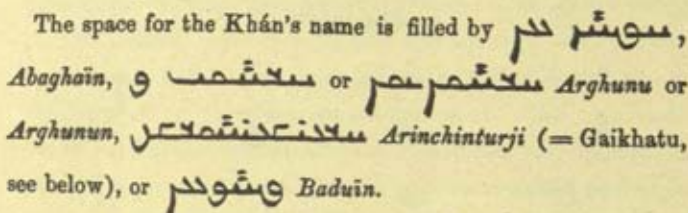 The space for the Khán's name is filled by ,
Abaghaïn, or Arghunu or
Arghunun, Arinchinturji (= Gaikhatu,
see below), or Baduïn.